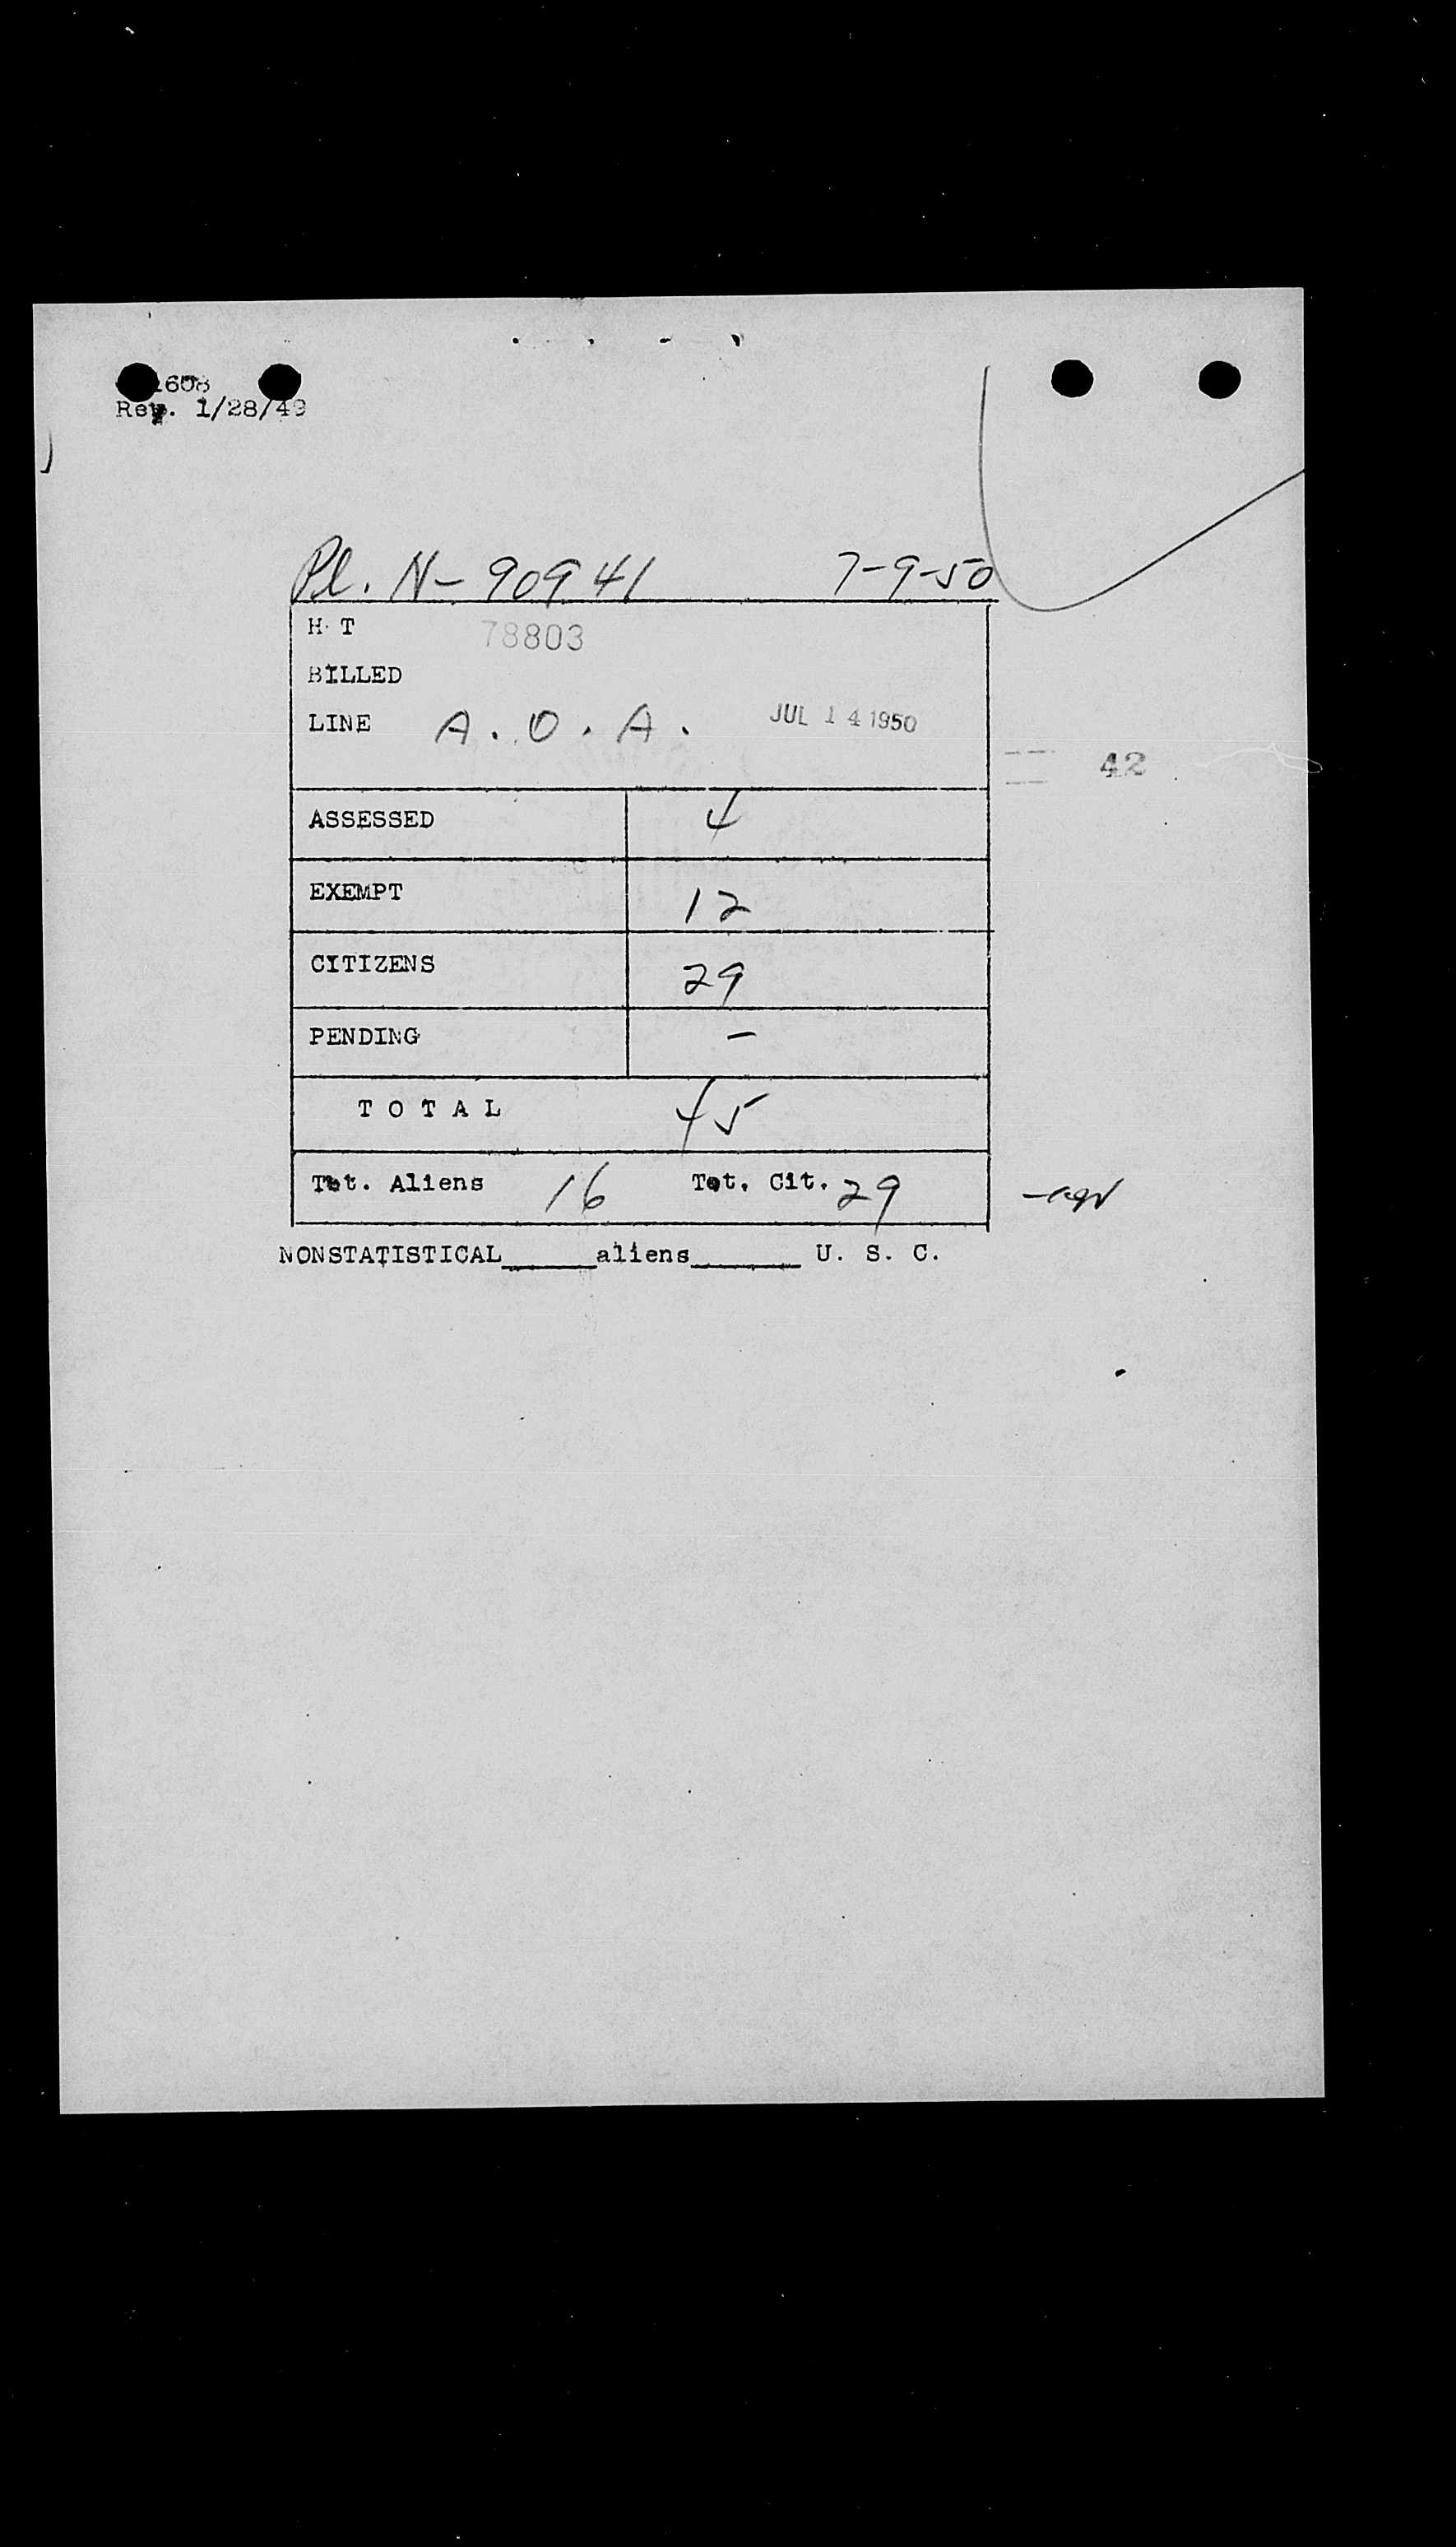 1608
Rev. 1/28/49
Pl. N-90941 7-9-50
H T 78803
BILLED
LINE A. O. A. JUL 14 1950
42
ASSESSED 4
EXEMPT 12
CITIZENS 29
PENDING -
T O T A L 45
Tot. Aliens 16 Tot. Cit. 29
NONSTATISTICAL______aliens_______ U. S. C.